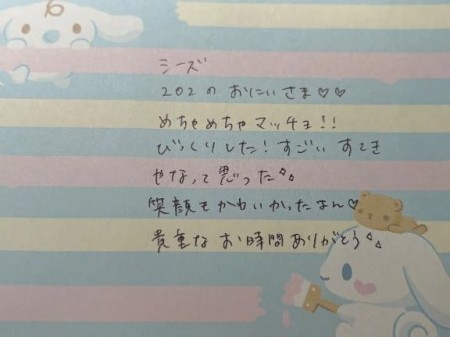 シーズ
202のおにいさま♡♡
めちゃめちゃマッチョ!!
びっくりした!すごいすてき
やなって思った
笑顔もかわいかったなん♡
貴重なお時間ありがとう